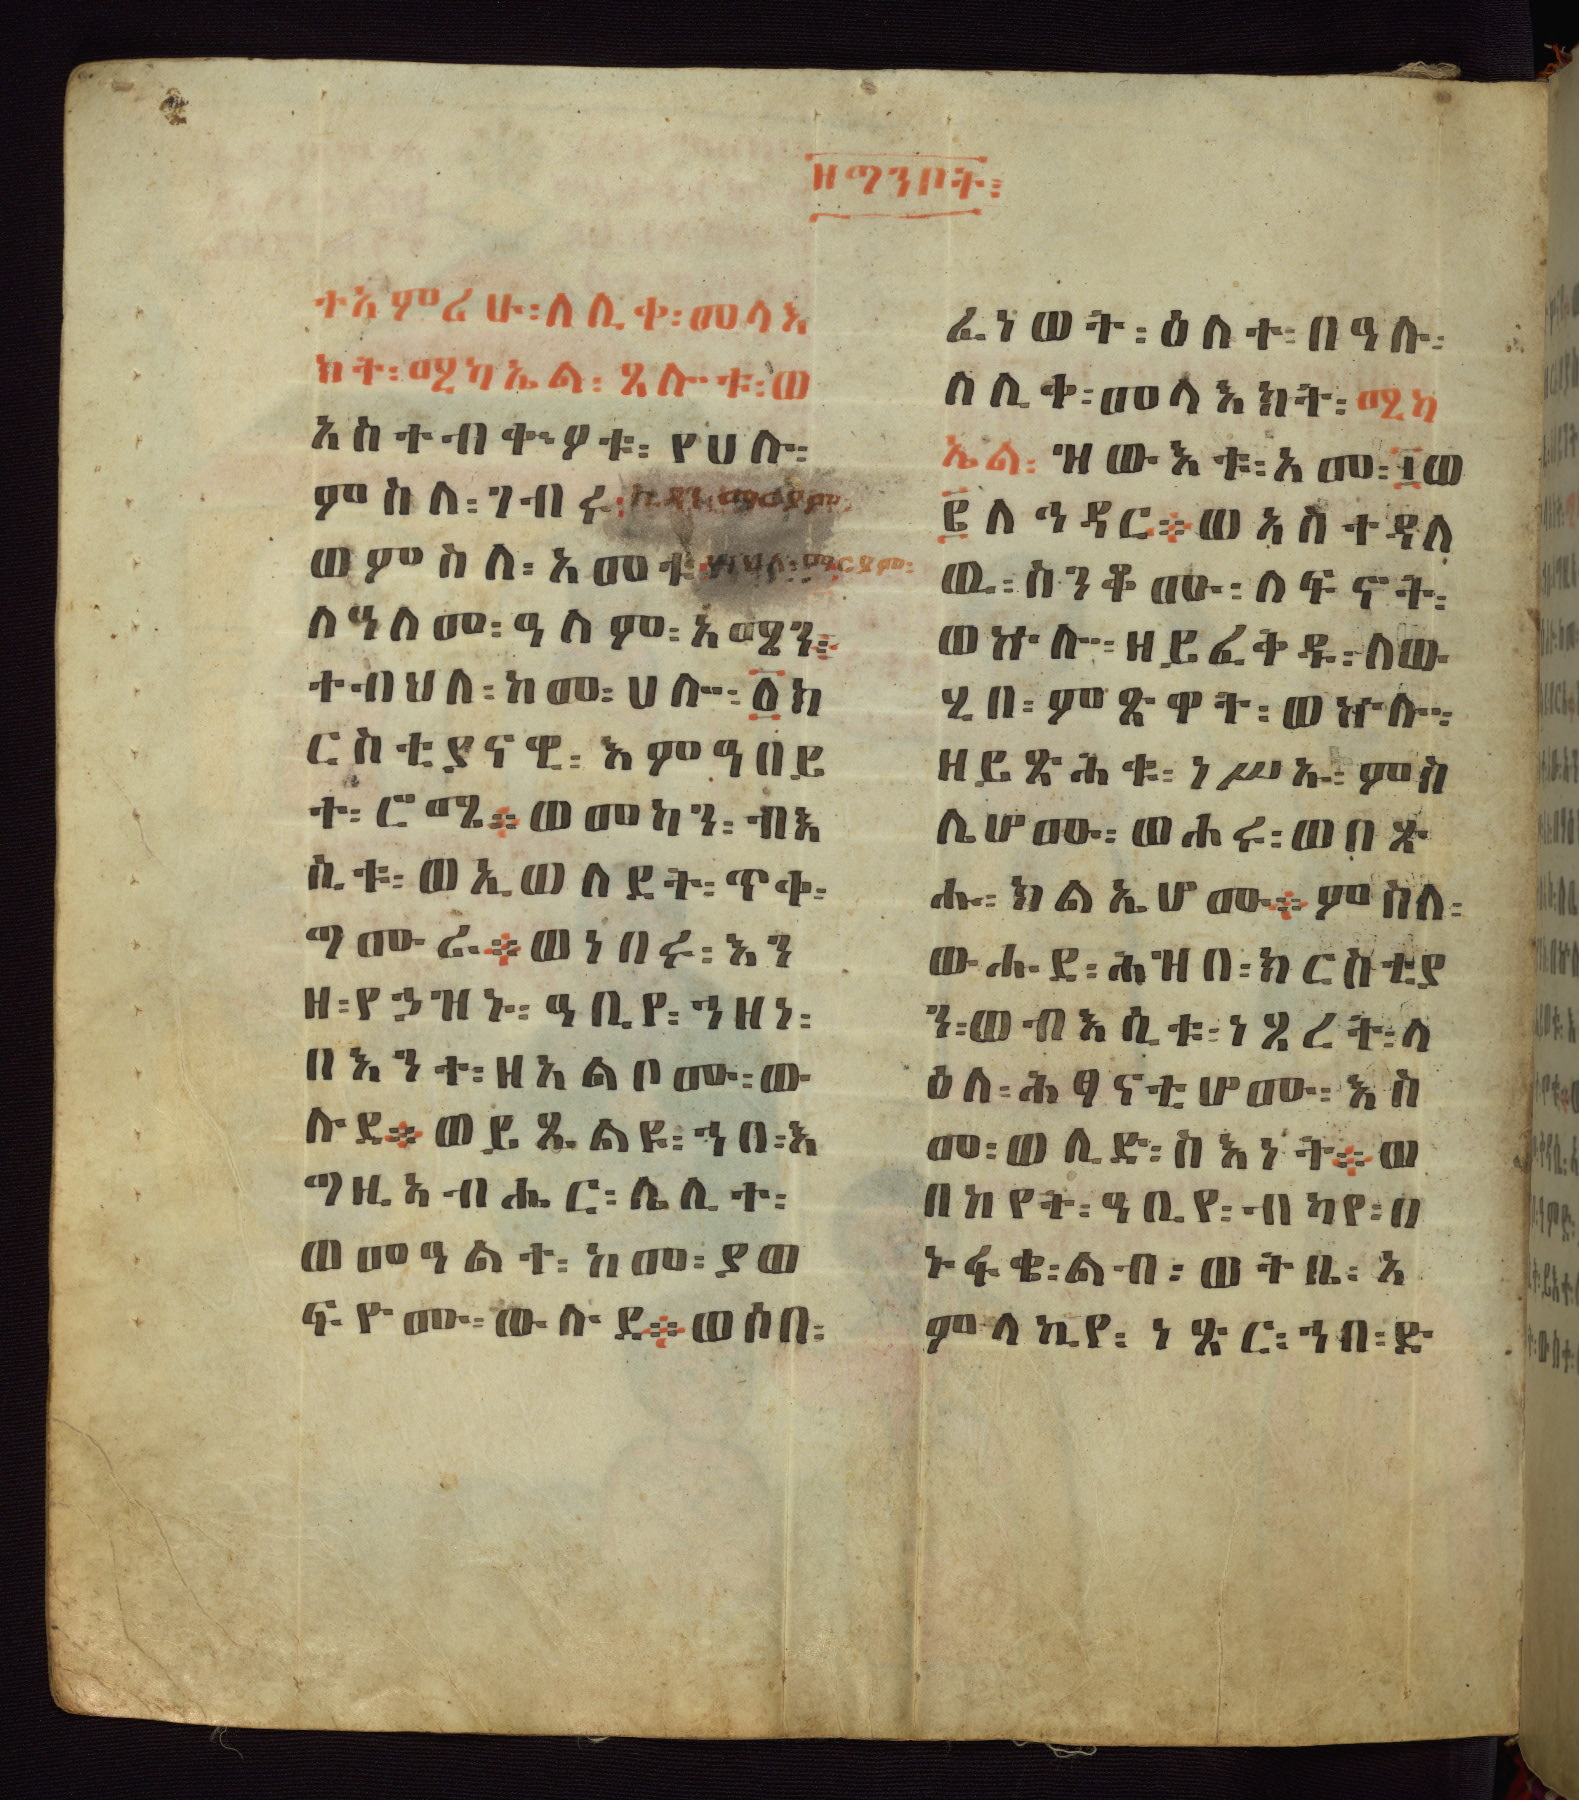 ዘግንቦት፡
ተአምሪሁ፡ለሊቀ፡መላእ
ክት፡ሚካኤል፡ጸሎቱ፡ወ
አስተብቍዖቱ፡የሀሉ፡
ምስለ፡ገብሩ፡ኪዳነ፡ማርያም፡
ወምስለ፡አመቱ፡ማርያም፡
ለዓለመ፡ዓለም፡አሜን፡
ተብህለ፡ከመ፡ሀሎ፡፩ክ
ርስቲያናዊ፡እምዓበይ
ተ፡ሮሜ፨ወመካን፡ብእ
ሲቱ፡ወኢወለደት፡ጥቀ፡
ግሙራ፨ወነበሩ፡እን
ዘ፡የኃዝኑ፡ዓቢየ፡ኀዘነ፡
በእንተ፡ዘአልቦሙ፡ው
ሉደ፨ወይጼልዩ፡ኀበ፡እ
ግዚአብሔር፡ሌሊተ፡
ወመዓልተ፡ከመ፡ያወ
ፍዮሙ፡ውሉደ፨ወሶበ፡
ፈነወት፡ዕለተ፡በዓሉ፡
ለሊቀ፡መላእክት፡ሚካ
ኤል፡ዝውእቱ፡አመ፡፲ወ
፪ለኅዳር፨ወአስተዳለ
ዉ፡ስንቆሙ፡ለፍኖት፡
ወኵሎ፡ዘይፈቅዱ፡ለው
ሂበ፡ምጽዋት፡ወኵሎ፡
ዘይጽሕቁ፡ነሥኡ፡ምስ
ሌሆሙ፡ወሐሩ፡ወበጽ
ሑ፡ክልኤሆሙ፨ምስለ፡
ውሑደ፡ሕዝበ፡ክርስቲያ
ን፡ወብእሲቱ፡ነጸረት፡ላ
ዕለ፡ሕፃናቲሆሙ፡እስ
መ፡ወሊድ፡ስእነት፨ወ
በከየት፡ዓቢየ፡ብካየ፡በ
ኑፋቄ፡ልብ፡ወትቤ፡አ
ምላኪየ፡ነጽር፡ኀበ፡ድ